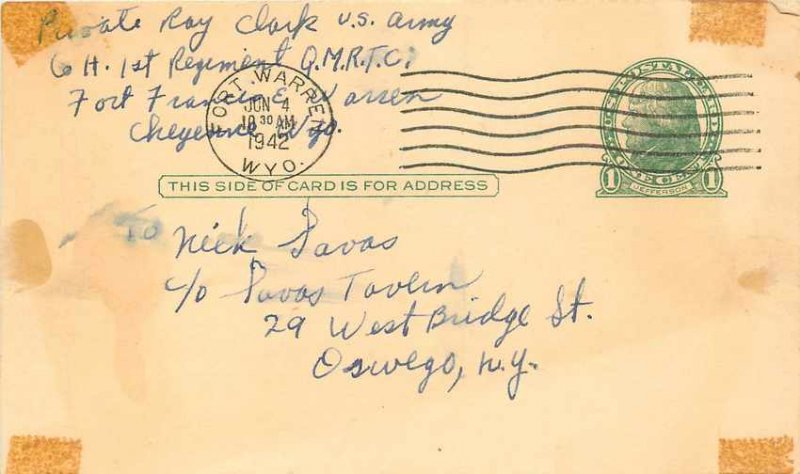 Private Ray Clark U.S. Army
Co H. 1st Regiment Q.M.R.T.C.
Fort Francis E. Warren
Cheyenne Wyo.
FORT WARREN
JUN 4
10 30 AM
1942
WYO.
U.S. POSTAGE
1 JEFFERSON 1
THIS SIDE OF CARD IS FOR ADDRESS
To Nick Pavas
c/o Pavas Tavern
29 West Bridge St.
Oswego, N.Y.